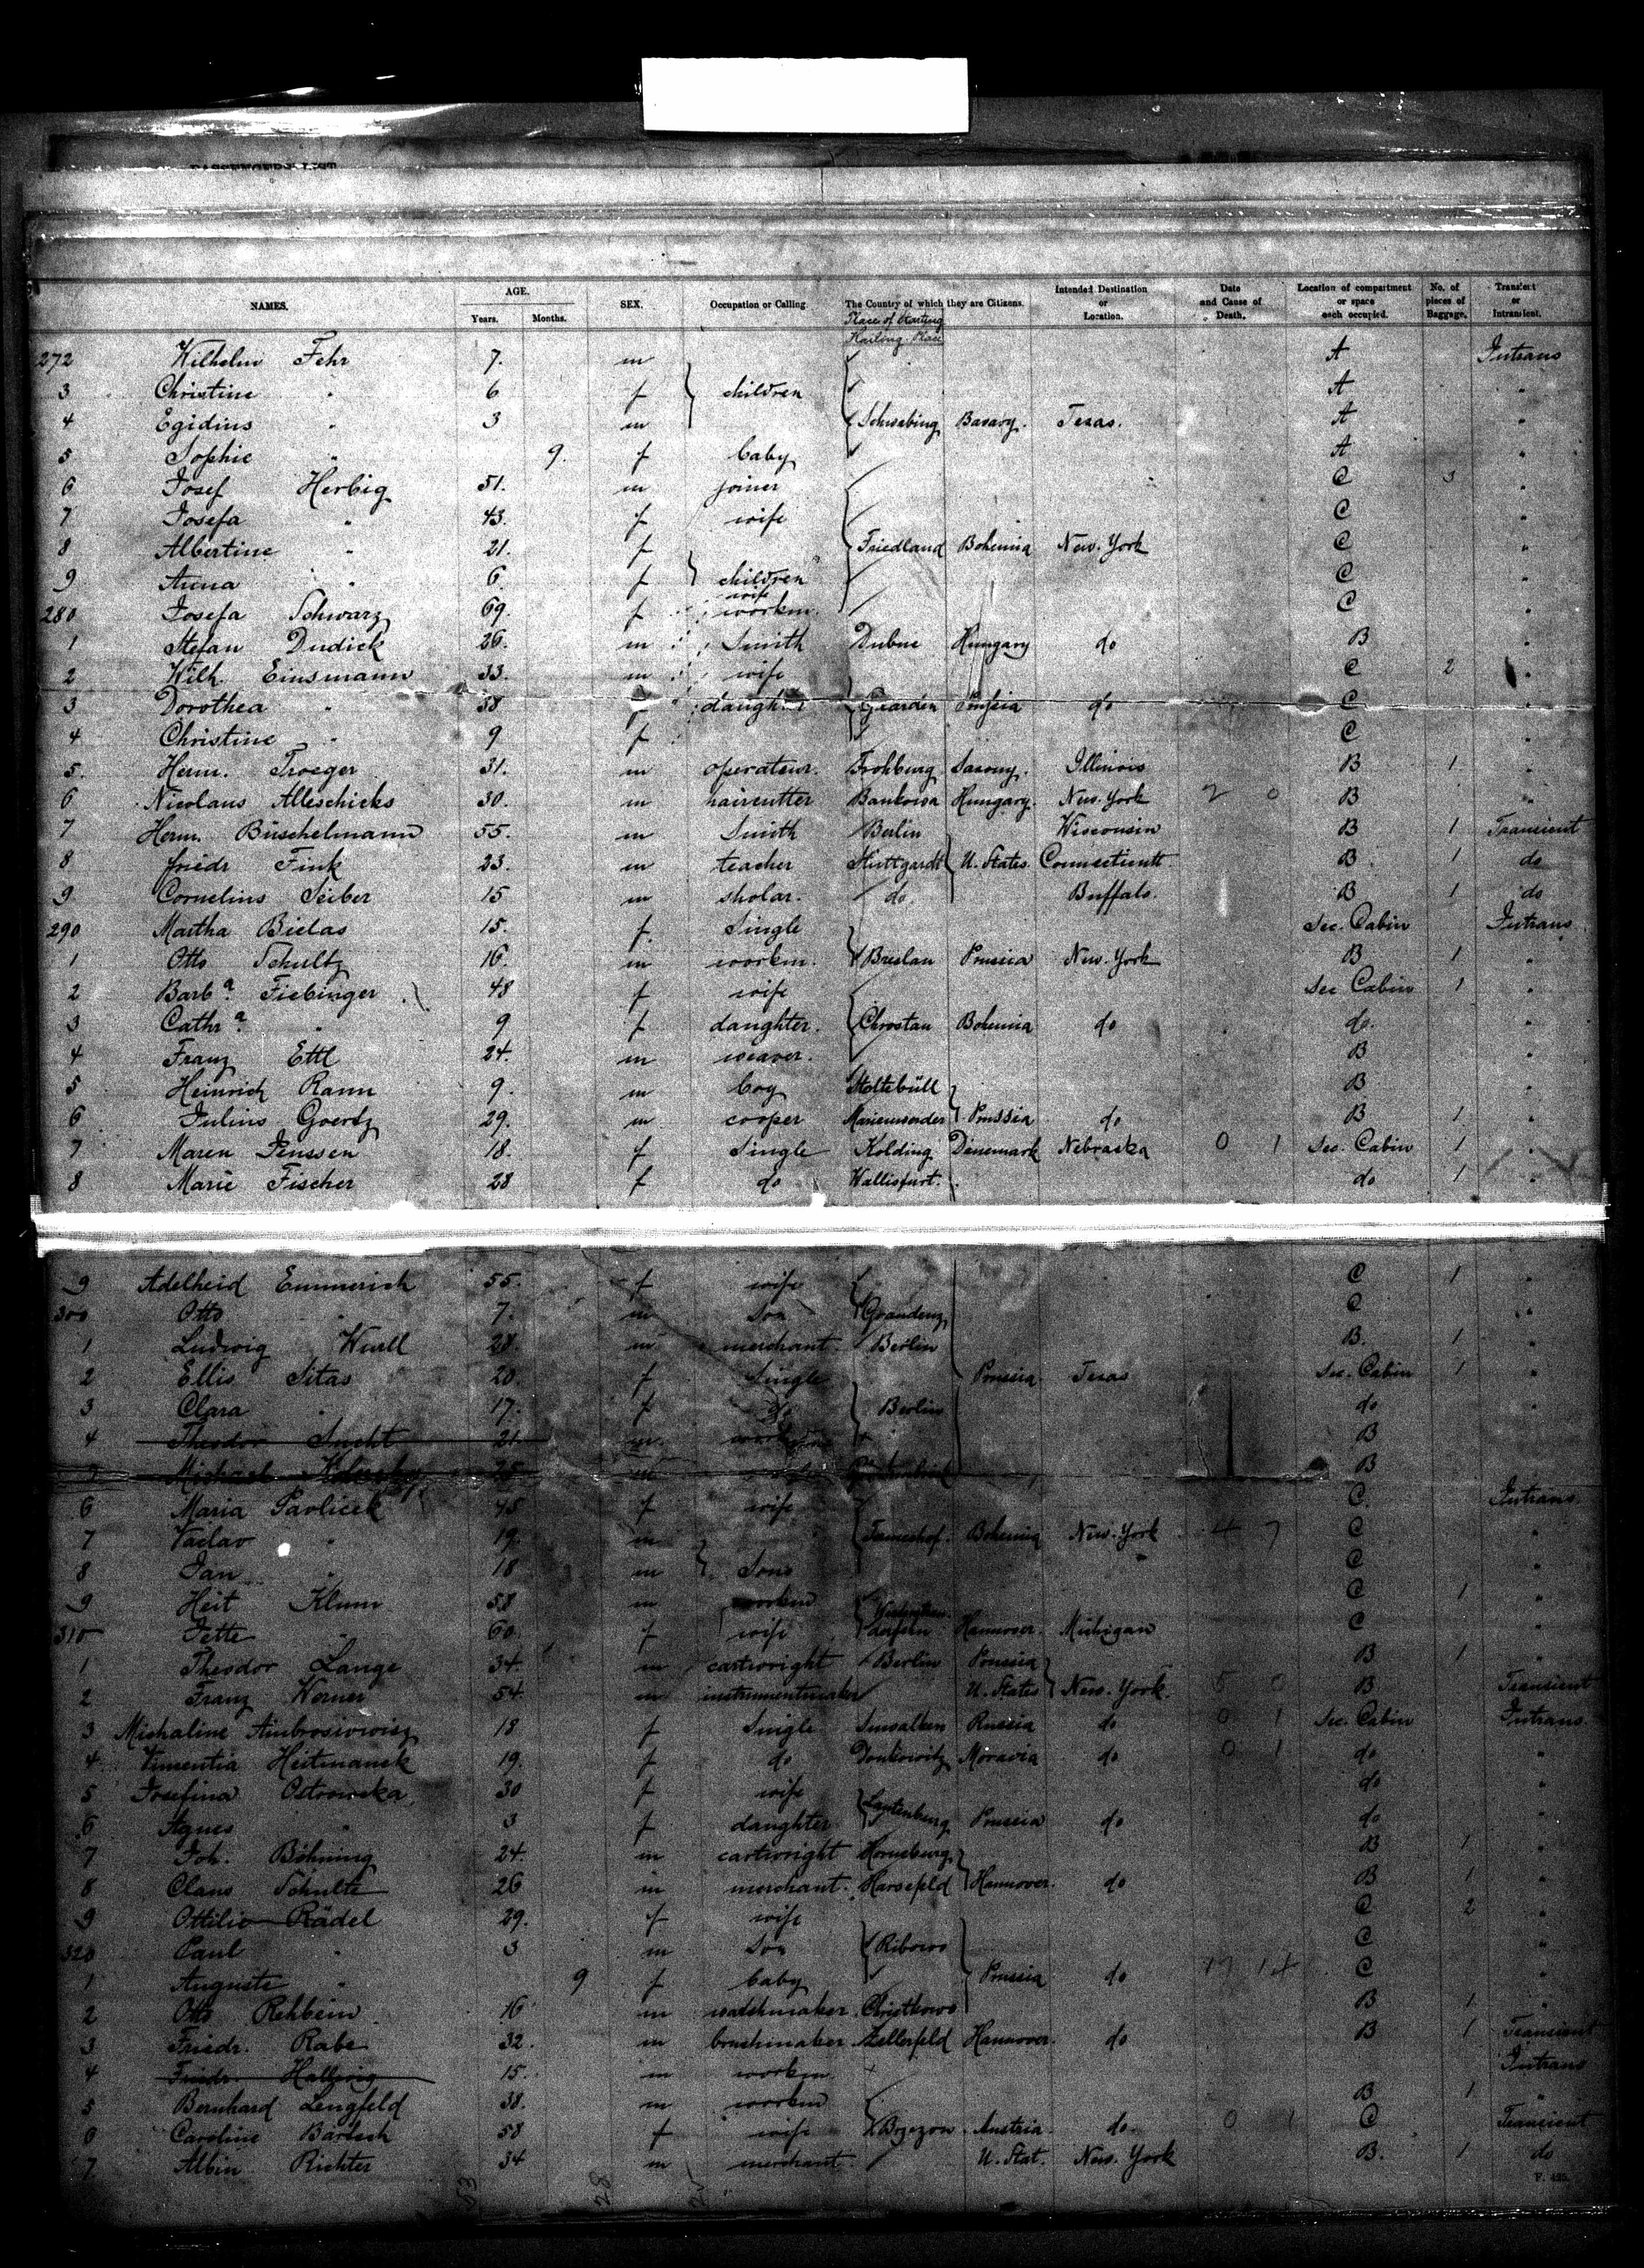 PASSENGERS LIST
NAMES. AGE. Years. Months. SEX. Occupation or Calling. The Country of which they are Citizens. Intended Destination or Location. Date and Cause of Death. Location of compartment or space each occupied. No. of pieces of Baggage. Transient or Intransient.
Place of Starting
Hailing Place
272 Wilhelm Fehr 7. m A Intrans
3 Christine " 6 f children A "
4 Egidius " 3 m Schwabing Bavary. Texas. A "
5 Sophie " 9. f baby A "
6 Josef Herbig 51. m joiner C 3 "
7 Josefa " 43. f wife C "
8 Albertine " 21. f Friedland Bohemia New-York C "
9 Anna " 6. f children C "
wife
280 Josefa Schwarz 69. f workm. C "
1 Stefan Dudick 26. m Smith Dubne Hungary do B "
2 Wilh. Einsmann 33. m wife C 2 "
3 Dorothea " 38 f daught. do C "
4 Christine " 9 f C "
5. Herm. Troeger 31. m operateur. Frohburg Saxony. Illinois B 1 "
6 Nicolaus Alleschicks 30. m haircutter Bankowa Hungary. New-York 2 0 B "
7 Herm. Büschelmann 55. m Smith Berlin Wisconsin B 1 Transient
8 Friedr Fink 23. m teacher Stuttgardt U. States Connecticutt B 1 do
9 Cornelius Seiber 15 m sholar. do. Buffalo. B 1 do
290 Martha Bielas 15. f. Single Sec. Cabin Intrans
1 Otto Schultz 16. m workm. Breslau Prussia New-York B 1 "
2 Barba. Fiebinger 48 f wife Sec Cabin 1 "
3 Cathra. " 9 f daughter. Chrostau Bohemia do do. "
4 Franz Ettl 24. m weaver. B "
5 Heinrich Rann 9. m boy Stoltebüll B "
6 Julius Goertz 29. m cooper Marienwerder Prussia do B 1 "
7 Maren Jenssen 18. f Single Kolding Denemark Nebraska 0 1 Sec. Cabin 1 "
8 Marie Fischer 28 f do Wallisfurt. do 1 "
9 Adelheid Emmerich 55. f wife C 1 "
300 Otto " 7. m Son Graudenz C "
1 Ludwig Wurll 28. m merchant. Berlin B. 1 "
2 Ellis Sitas 20. f Single Prussia Texas Sec. Cabin 1 "
3 Clara " 17. f do Berlin do "
4 Theodor Sucht 21. m. B
Michael 25 m B
6 Maria Pavlicek 45 f wife C. Intrans
7 Vaclav " 19. m Bohemia New-York 4 7 C "
8 Jan " 18 m Sons C "
9 Heit Klumm 58 m workm C 1 "
310 Jette " 60. f wife Hannover. Michigan C "
1 Theodor Lange 34. m cartwright Berlin Prussia B 1 "
2 Franz Werner 54. m instrumentmaker U. States New-York. 5 0 B Transient
3 Michaline Ambrosiewicz 18 f Single Suwalken Russia do 0 1 Sec. Cabin Intrans
4 Vincentia Heitmanek 19. f do Moravia do 0 1 do "
5 Josefina Ostrowska 30 f wife do "
6 Agnes " 3 f daughter Lautenburg Prussia do do "
7 Joh. Böhning 24. m cartwright Horneburg B 1 "
8 Claus Schulte 26 m merchant. Harsefeld Hannover. do B 1 "
9 Ottilie Rädel 29. f wife C 2 "
320 Paul " 3 m Son Ribowo C "
1 Auguste " 9 f baby Prussia do C "
2 Otto Rehbein 16 m watchmaker Christkowo B 1 "
3 Friedr. Rabe 32. m brushmaker Zellerfeld Hannover. do B 1 Transient
4 Friedr. Hallwig 15. m workm Intrans
5 Bernhard Lengfeld 38. m workm B 1 "
6 Caroline Bartsch 58 f wife Brzezow Austria. do. 0 1 C Transient
7 Albin Richter 34 m merchant. U. Stat. New-York B. 1 do
F. 425.
53 28